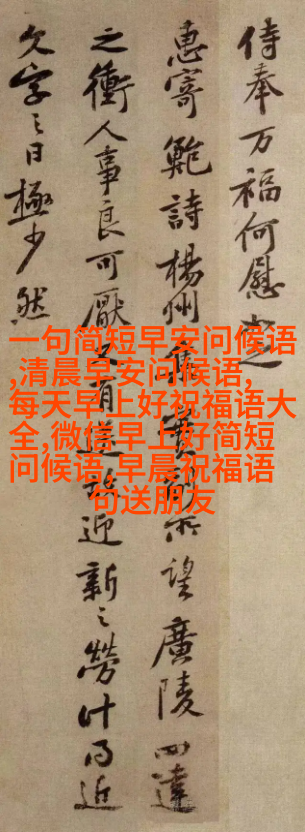 侍奉万福何慰之
惠寄鮑詩楊州望廣陵四達
之衝人事良可厭又有迎新之勞計日近
字之日極少然
一句简短早安问候语
,清晨早安问候语,
每天早上好祝福语大
全,微信早上好简短
问候语,早晨祝福语
句送朋友